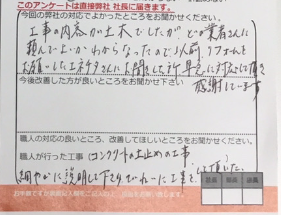 このアンケートは直接弊社 社長に届きます。
今回の弊社の対応でよかったところをお聞かせください。
工事の内容が土木でしたが どの業者さんに
頼んでよいかわからなかったので以前リフォームを
お願いしたエネチタさんに お聞きした所 早急に対応して頂き
感謝しています
今後改善した方が良いところをお聞かせ下さい
職人の対応の良いところ、改善してほしいところをお聞かせください。
職人が行った工事（コンクリートの土止めの工事）
細やかに説明して下さりていねいに工事をして頂いた。